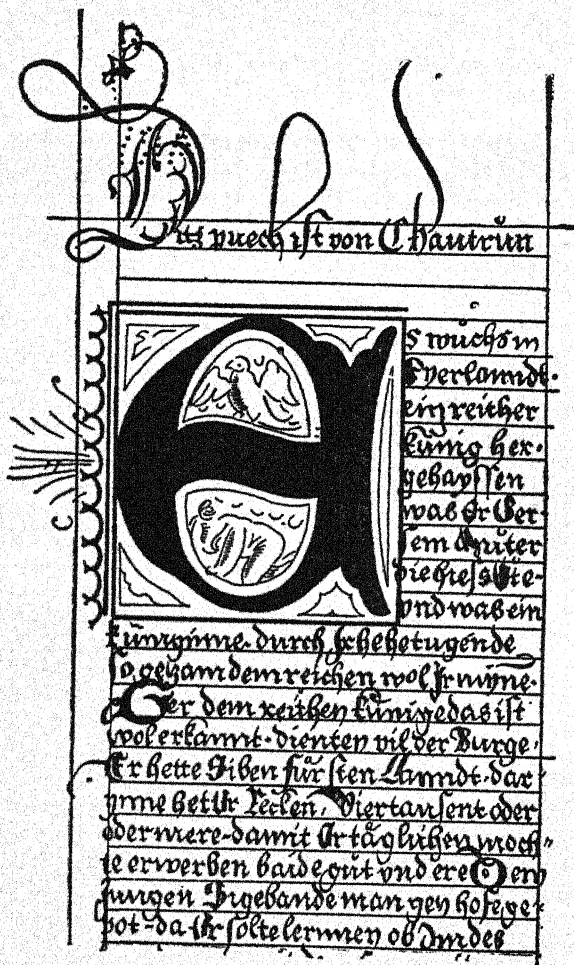 Ditz puech ist von Chautrůn
Es wůchs in
Eyerlanndt.
ein reicher
kůnig her.
gehayssen
was Er Ger
sein Můter
die hiess Ůte-
vnd was ein
kůniginne. durch Ir hehe tugende
so gezam dem reichen wol Ir mynne.
Ger dem reichen kůnige das ist
wol erkannt. dienten vil der Burge.
Er hette Siben fůrsten Lanndt. dar
ynne het Er Recken, Viertausent oder
oder mere. damit Er täglichen moch
te erwerben baide gůt vnd ere Dem
jungen Sigebande man gen hofe ge
pot. da Er solte lernnen ob Im des